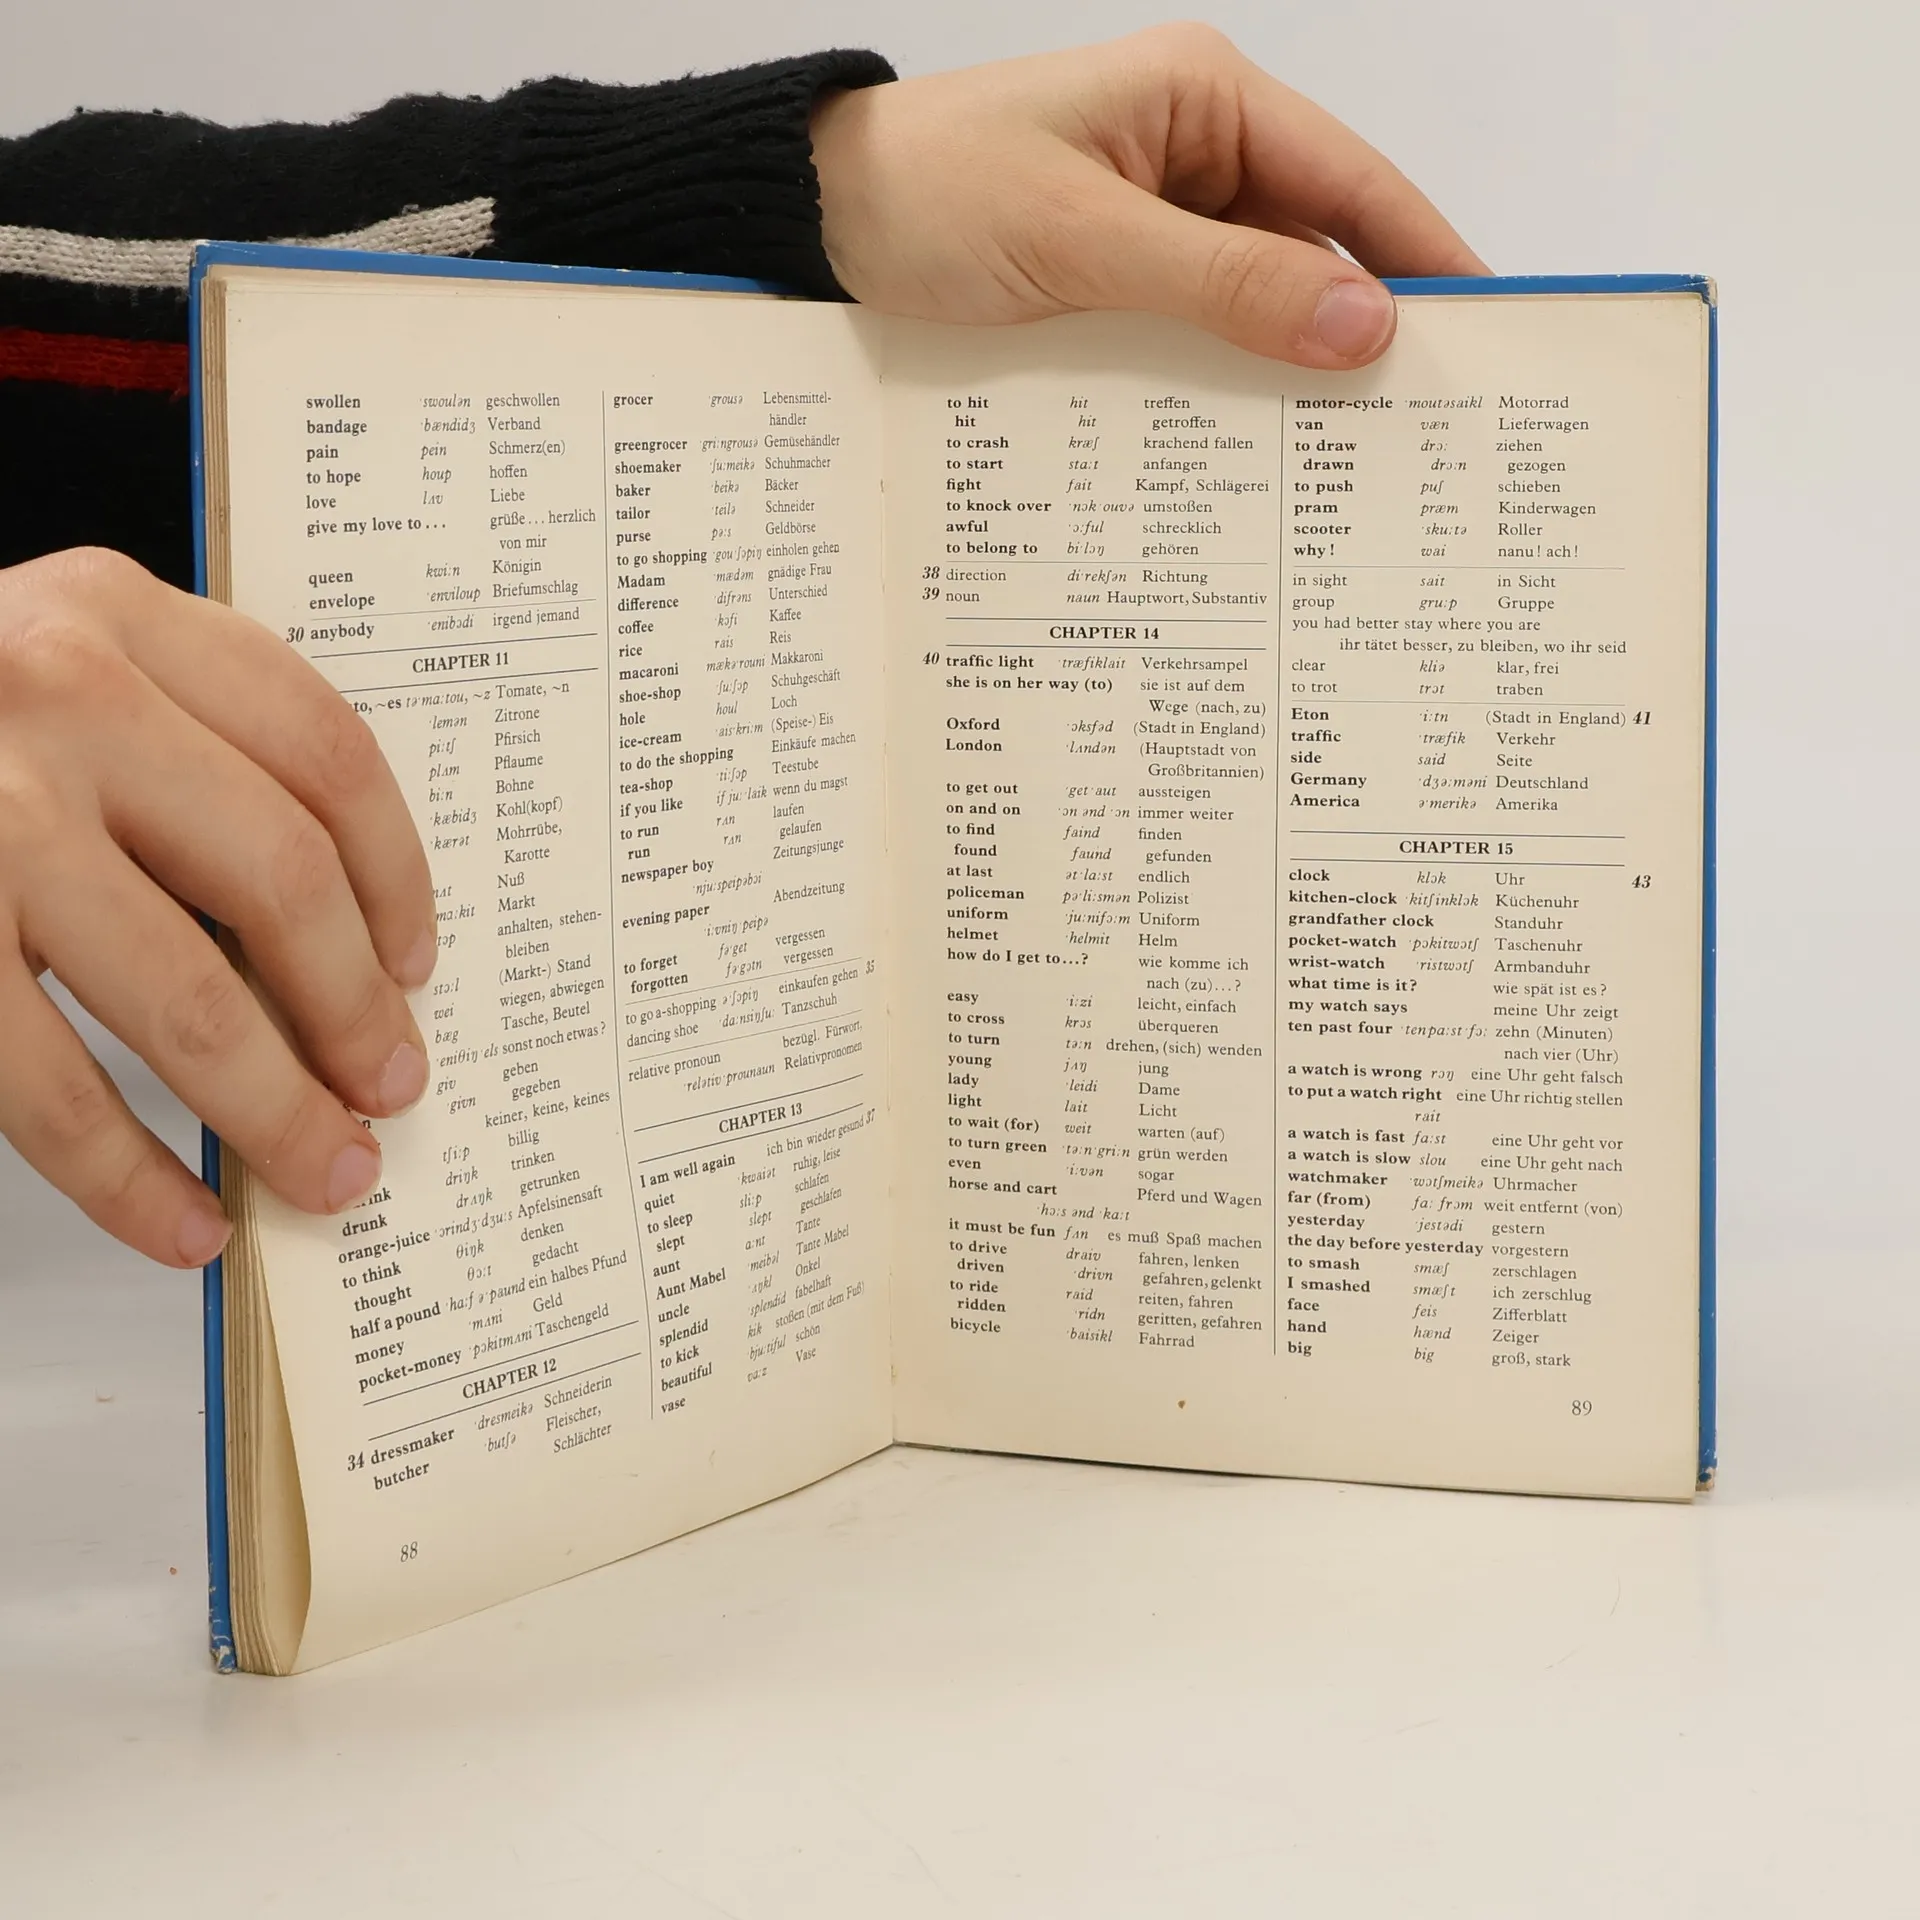 swollen ˈswoulən geschwollen
bandage ˈbændidʒ Verband
pain pein Schmerz(en)
to hope houp hoffen
love lʌv Liebe
give my love to... grüße... herzlich
von mir
queen kwi:n Königin
envelope ˈenviloup Briefumschlag
30 anybody ˈenibɔdi irgend jemand
CHAPTER 11
to, ~es təˈma:tou, ~z Tomate, ~n
ˈlemən Zitrone
pi:tʃ Pfirsich
plʌm Pflaume
bi:n Bohne
ˈkæbidʒ Kohl(kopf)
ˈkærət Mohrrübe,
Karotte
nʌt Nuß
ma:kit Markt
tɔp anhalten, stehen-
bleiben
stɔ:l (Markt-) Stand
wei wiegen, abwiegen
bæg Tasche, Beutel
ˈeniθiŋ ˈels sonst noch etwas?
giv geben
ˈgivn gegeben
keiner, keine, keines
tʃi:p billig
driŋk trinken
drunk drʌŋk getrunken
orange-juice ˈɔrindʒ dʒu:s Apfelsinensaft
to think θiŋk denken
thought θɔ:t gedacht
half a pound ˈha:f ə ˈpaund ein halbes Pfund
money ˈmʌni Geld
pocket-money ˈpɔkitmʌni Taschengeld
CHAPTER 12
34 dressmaker ˈdresmeikə Schneiderin
butcher ˈbutʃə Fleischer,
Schlächter
88
grocer ˈgrousə Lebensmittel-
händler
greengrocer ˈgri:ngrousə Gemüsehändler
shoemaker ˈʃu:meikə Schuhmacher
baker ˈbeikə Bäcker
tailor ˈteilə Schneider
purse pə:s Geldbörse
to go shopping ˈgou ˈʃɔpiŋ einholen gehen
Madam ˈmædəm gnädige Frau
difference ˈdifrəns Unterschied
coffee ˈkɔfi Kaffee
rice rais Reis
macaroni mækəˈrouni Makkaroni
shoe-shop ˈʃu:ʃɔp Schuhgeschäft
hole houl Loch
ice-cream ˈaisˈkri:m (Speise-) Eis
to do the shopping Einkäufe machen
tea-shop ˈti:ʃɔp Teestube
if you like if ju: ˈlaik wenn du magst
to run rʌn laufen
run rʌn gelaufen
newspaper boy Zeitungsjunge
ˈnju:speipəbɔi
evening paper Abendzeitung
ˈi:vniŋ ˈpeipə
to forget fəˈget vergessen
forgotten fəˈgɔtn vergessen
to go a-shopping əˈʃɔpiŋ einkaufen gehen 35
dancing shoe ˈda:nsiŋʃu: Tanzschuh
relative pronoun bezügl. Fürwort,
ˈrelətiv ˈprounaun Relativpronomen
CHAPTER 13
I am well again ich bin wieder gesund 37
quiet ˈkwaiət ruhig, leise
to sleep sli:p schlafen
slept slept geschlafen
aunt a:nt Tante
Aunt Mabel ˈmeibəl Tante Mabel
uncle ˈʌŋkl Onkel
splendid ˈsplendid fabelhaft
to kick kik stoßen (mit dem Fuß)
beautiful ˈbju:tiful schön
vase va:z Vase
to hit hit treffen
hit hit getroffen
to crash kræʃ krachend fallen
to start sta:t anfangen
fight fait Kampf, Schlägerei
to knock over ˈnɔk ˈouvə umstoßen
awful ˈɔ:ful schrecklich
to belong to biˈlɔŋ gehören
38 direction diˈrekʃən Richtung
39 noun naun Hauptwort, Substantiv
CHAPTER 14
40 traffic light ˈtræfiklait Verkehrsampel
she is on her way (to) sie ist auf dem
Wege (nach, zu)
Oxford ˈɔksfəd (Stadt in England)
London ˈlʌndən (Hauptstadt von
Großbritannien)
to get out ˈget ˈaut aussteigen
on and on ˈɔn ənd ˈɔn immer weiter
to find faind finden
found faund gefunden
at last ət ˈla:st endlich
policeman pəˈli:smən Polizist
uniform ˈju:nifɔ:m Uniform
helmet ˈhelmit Helm
how do I get to...? wie komme ich
nach (zu)...?
easy ˈi:zi leicht, einfach
to cross krɔs überqueren
to turn tə:n drehen, (sich) wenden
young jʌŋ jung
lady ˈleidi Dame
light lait Licht
to wait (for) weit warten (auf)
to turn green ˈtə:n ˈgri:n grün werden
even ˈi:vən sogar
horse and cart Pferd und Wagen
ˈhɔ:s ənd ˈka:t
it must be fun fʌn es muß Spaß machen
to drive draiv fahren, lenken
driven ˈdrivn gefahren, gelenkt
to ride raid reiten, fahren
ridden ˈridn geritten, gefahren
bicycle ˈbaisikl Fahrrad
motor-cycle ˈmoutəsaikl Motorrad
van væn Lieferwagen
to draw drɔ: ziehen
drawn drɔ:n gezogen
to push puʃ schieben
pram præm Kinderwagen
scooter ˈsku:tə Roller
why! wai nanu! ach!
in sight sait in Sicht
group gru:p Gruppe
you had better stay where you are
ihr tätet besser, zu bleiben, wo ihr seid
clear kliə klar, frei
to trot trɔt traben
Eton ˈi:tn (Stadt in England) 41
traffic ˈtræfik Verkehr
side said Seite
Germany ˈdʒə:məni Deutschland
America əˈmerikə Amerika
CHAPTER 15
clock klɔk Uhr 43
kitchen-clock ˈkitʃinklɔk Küchenuhr
grandfather clock Standuhr
pocket-watch ˈpɔkitwɔtʃ Taschenuhr
wrist-watch ˈristwɔtʃ Armbanduhr
what time is it? wie spät ist es?
my watch says meine Uhr zeigt
ten past four ˈten pa:st ˈfɔ: zehn (Minuten)
nach vier (Uhr)
a watch is wrong rɔŋ eine Uhr geht falsch
to put a watch right eine Uhr richtig stellen
rait
a watch is fast fa:st eine Uhr geht vor
a watch is slow slou eine Uhr geht nach
watchmaker ˈwɔtʃmeikə Uhrmacher
far (from) fa: frɔm weit entfernt (von)
yesterday ˈjestədi gestern
the day before yesterday vorgestern
to smash smæʃ zerschlagen
I smashed smæʃt ich zerschlug
face feis Zifferblatt
hand hænd Zeiger
big big groß, stark
89